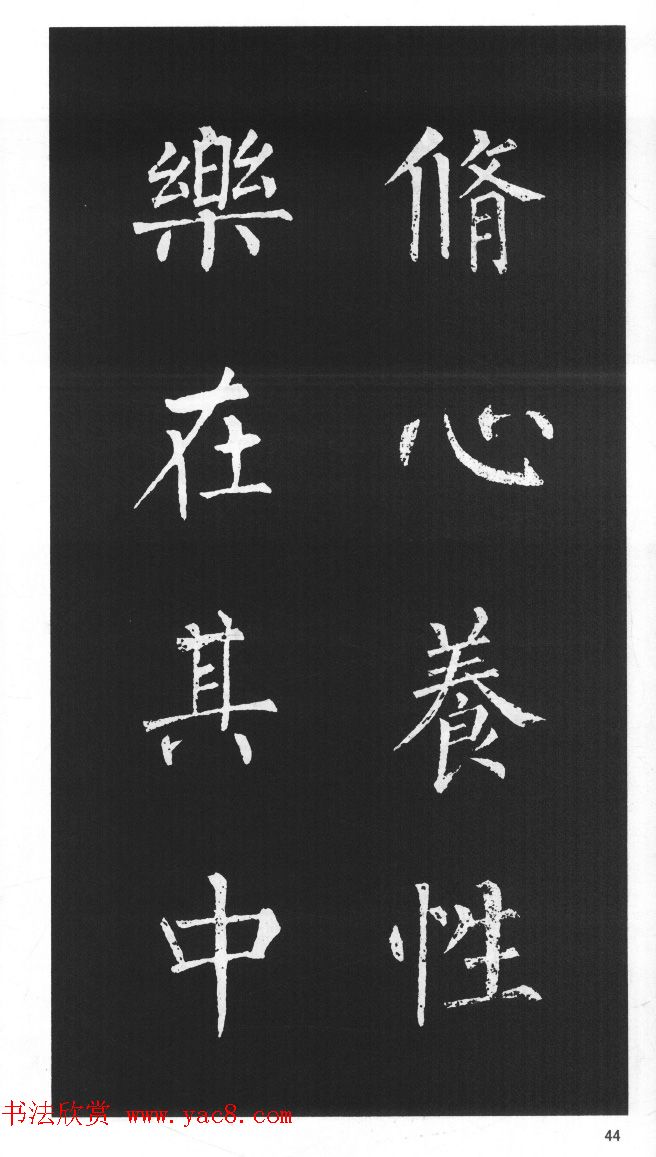 脩心養性
樂在其中
书法欣赏 www.yac8.com
44